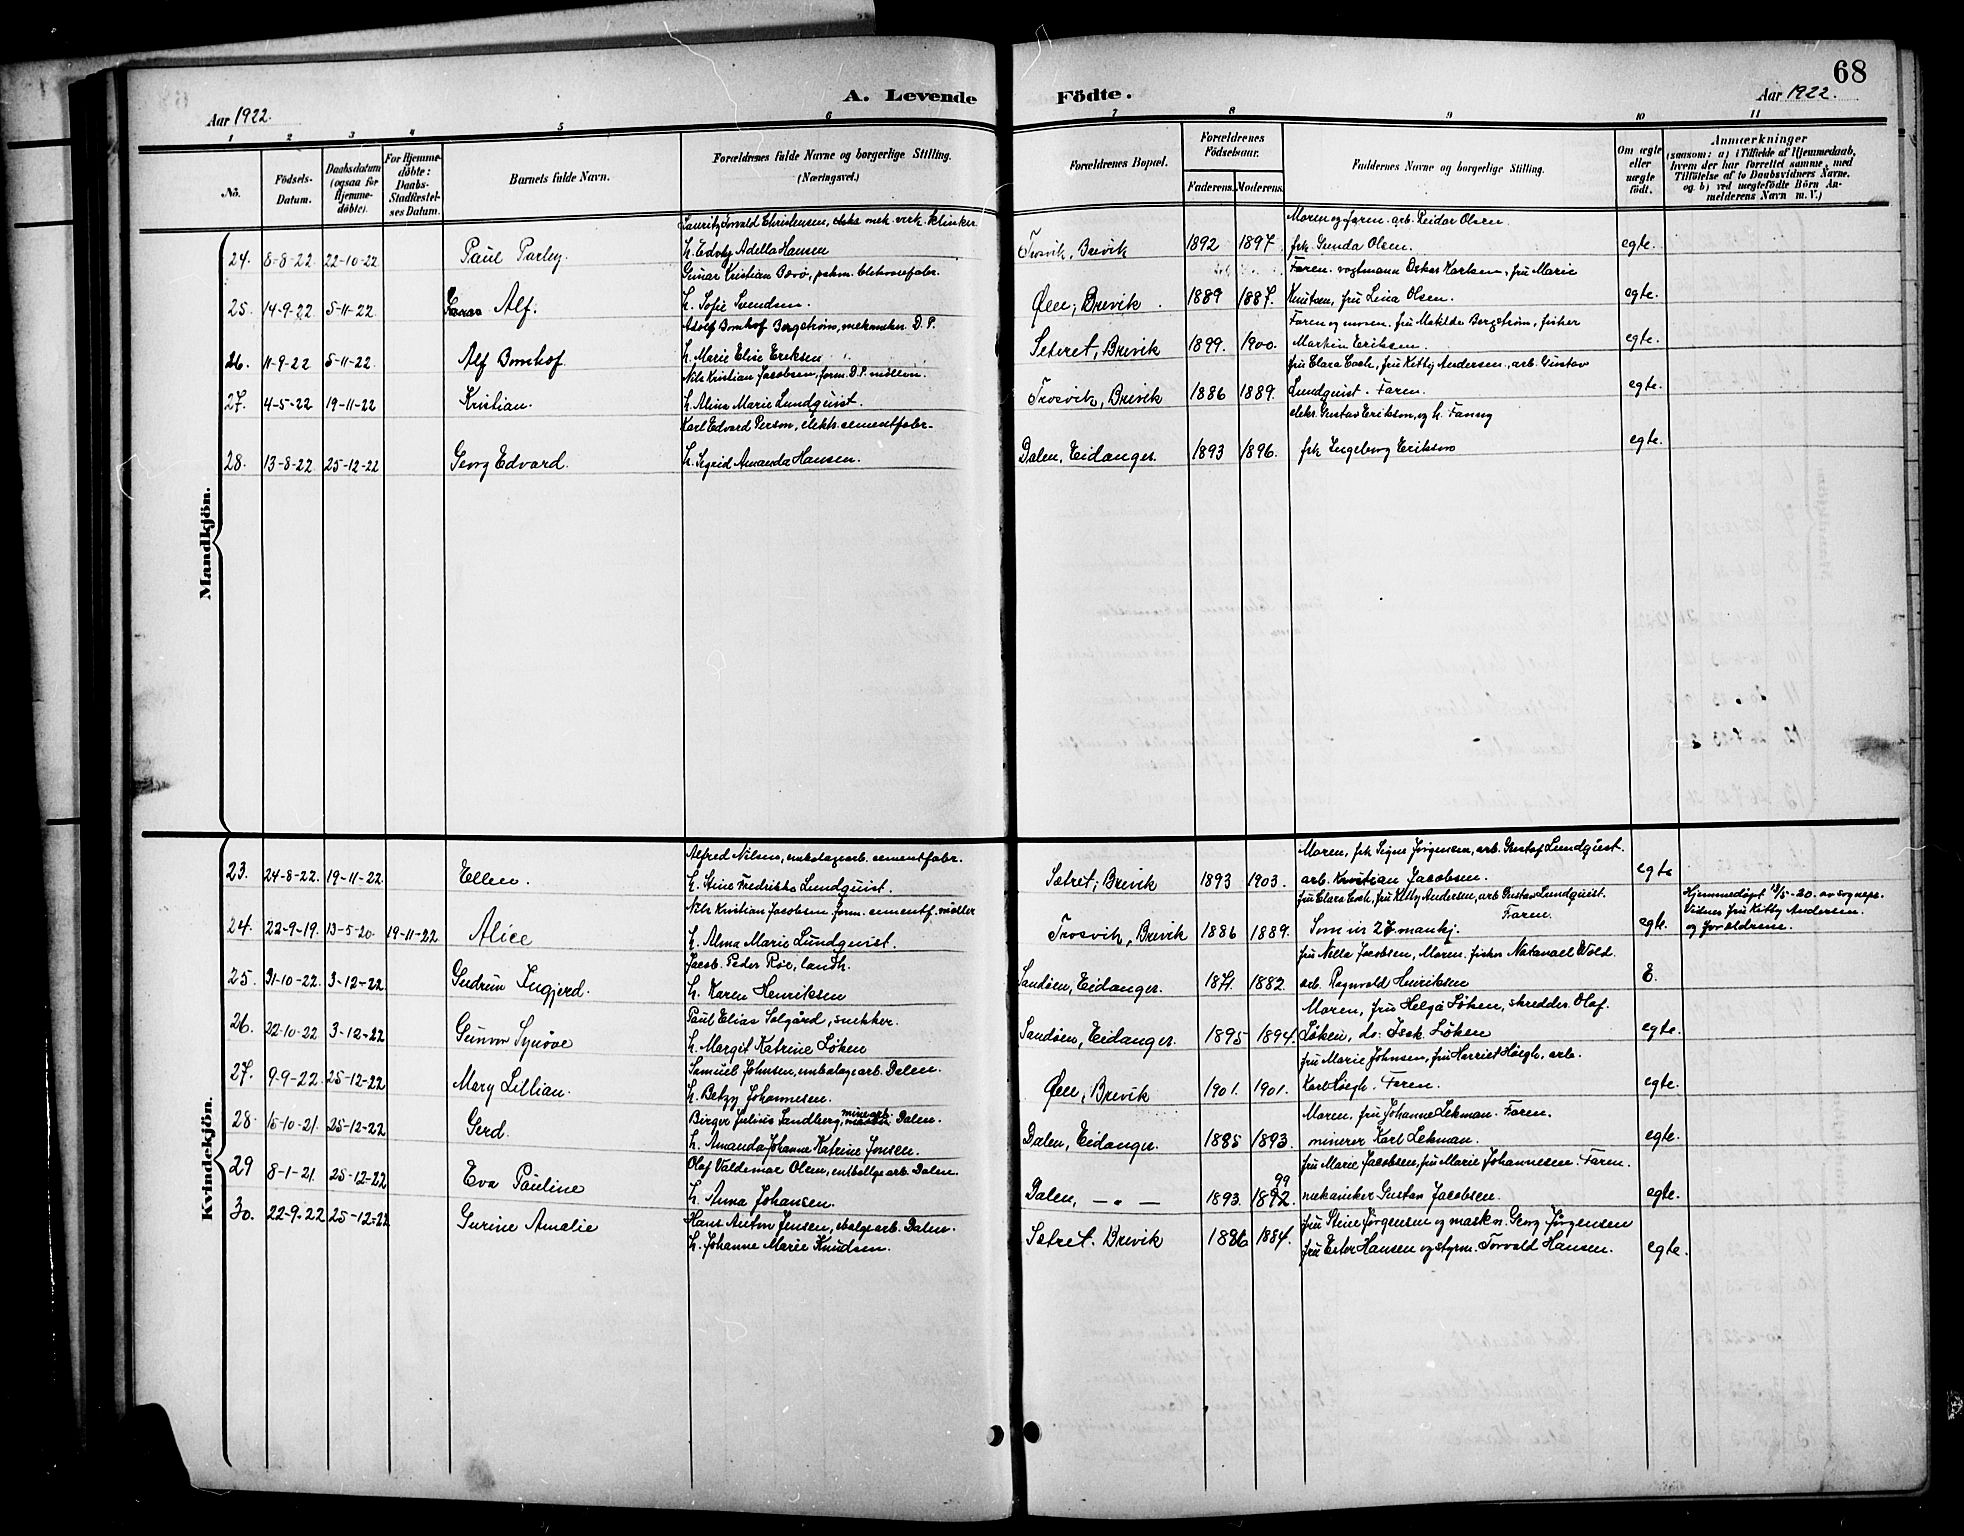 68
A. Levende Födte.
Aar 1922.
Aar 1922.
1 2 3 4 5 6 7 8 9 10 11
No.
Födsels-Datum.
Daabsdatum (ogsaa for Hjemme-döbte).
For Hjemme-döbte: Daabs-Stadfæstel-ses Datum.
Barnets fulde Navn.
Forældrenes fulde Navne og borgerlige Stilling. (Næringsvei.)
Forældrenes Bopæl.
Forældrenes Födselsaar.
Faderens. Moderens.
Faddernes Navne og borgerlige Stilling.
Om ægte eller uægte födt.
Anmærkninger
(saasom: a) i Tilfælde af Hjemmedaab, hvem der har forrettet samme, med Tilföielse af to Daabsvidners Navne, og b) ved uægtefödte Börn An-melderens Navn m. V.)
Mandkjön.
Lauritz Torvald Christensen, mek. verk. klinker
24. 8-8-22 22-10-22 Paul Parley. h. Edvky Adella Hansen Trosvik, Brevik 1892 1897 Moren og faren. arb. Reidar Olsen. frk. Gunda Olsen. egte.
Gunar Kristian Børø, cementfabr.
25. 14-9-22 5-11-22 Alf. h. Sofie Svendsen. Øen, Brevik. 1889 1887. Faren. vogtmann Oskar Karlsen, fru Marie Knutsen, fru Lina Olsen. egte.
Adolf Bomhof Bergstrøm, mekaniker D.P.
26. 11-9-22 5-11-22 Alf Bomhof. h. Marie Elise Eriksen Seteret, Brevik 1899. 1900. Faren og moren. fru Matilde Bergstrøm, fisker Martin Eriksen. egte.
Nils Kristian Jacobsen, form. D.P. møllen.
27. 4-5-22 19-11-22 Kristian. h. Alma Marie Lundquist. Trosvik, Brevik 1886 1889. fru Clara Each, fru Kitty Andersen, arb. Gustav Lundquist. Faren. egte.
Karl Edvard Person, elektr. cementfabr.
28. 13-8-22 25-12-22 Georg Edvard. h. Sigrid Amanda Hansen. Dalen, Eidanger. 1893 1896. elekr. Gustav Erikson, og h. Fanny frk. Ingeborg Eriksen egte.
Kvindekjön.
Alfred Nilsen, embalagearb. cementfabr.
23. 24-8-22. 19-11-22. Ellen. h. Stine Fredrikke Lundquist. Sætret, Brevik 1893 1903. Moren, frk Signe Jørgensen, arb. Gustaf Lundquist. arb. Kristian Jacobsen. egte
Nils Kristian Jacobsen form. cementf. møller
24. 22-9-19. 13-5-20. 19-11-22 Alice h. Alma Marie Lundquist. Trosvik, Brevik 1886 1889. fru Clara Each, fru Kitty Andersen, arb Gustav Lundquist. Faren. Som nr 27 mankj. egte. Hjemmedøpt 13/5-20. av sognepr. Vidner fru Kitty Andersen. og foreldrene.
Jacob Peder Røe, landh.
25. 31-10-22. 3-12-22 Gudrun Ingjerd. h. Karen Henriksen Sandøen, Eidanger. 1871. 1882. fru Nella Jacobsen, Moren. fisker Natanael Wold. arb. Ragnvald Henriksen E.
Paul Elias Solgård, snekker.
26. 22-10-22 3-12-22 Gunvor Synøve h. Margit Katrine Løken Sandøen, Eidanger. 1895 1894. Moren, fru Helga Løken, skredder Olaf Løken, do: Isak Løken egte.
Samuel Johnsen, embalagearb. Dalen.
27. 9-9-22. 25-12-22 Mary Lillian. h. Betzy Johannesen. Øen, Brevik 1901. 1901. fru Marie Johnsen, fru Harriet Høegh, arb. Karl Høegh. Faren. egte.
Birger Julius Sandberg, minearb. Dalen.
28. 15-10-21. 25-12-22 Gerd. h. Amanda Johanne Katrine Jonsen. Dalen, Eidanger. 1885 1893. Moren, fru Johanne Lekman. Faren. minerer Karl Lekman. egte.
Olaf Valdemar Olsen, embalgearb. Dalen.
29 8-1-21. 25-12-22 Eva Pauline h. Anna Johansen. Dalen, — „ — 1893. 1892. 99 fru Marie Jacobsen, fru Marie Johannesen. Faren. mekaniker Gustav Jacobsen. egte.
Hans Anton Jensen, ebalgearb. Dalen.
30. 22-9-22 25-12-22 Gurine Amalie h. Johanne Marie Knudsen. Sætret. Brevik 1886 1884. fru Stine Jørgensen og maskn. Georg Jørgensen fru Ester Hansen og styrm. Torvald Hansen. egte.